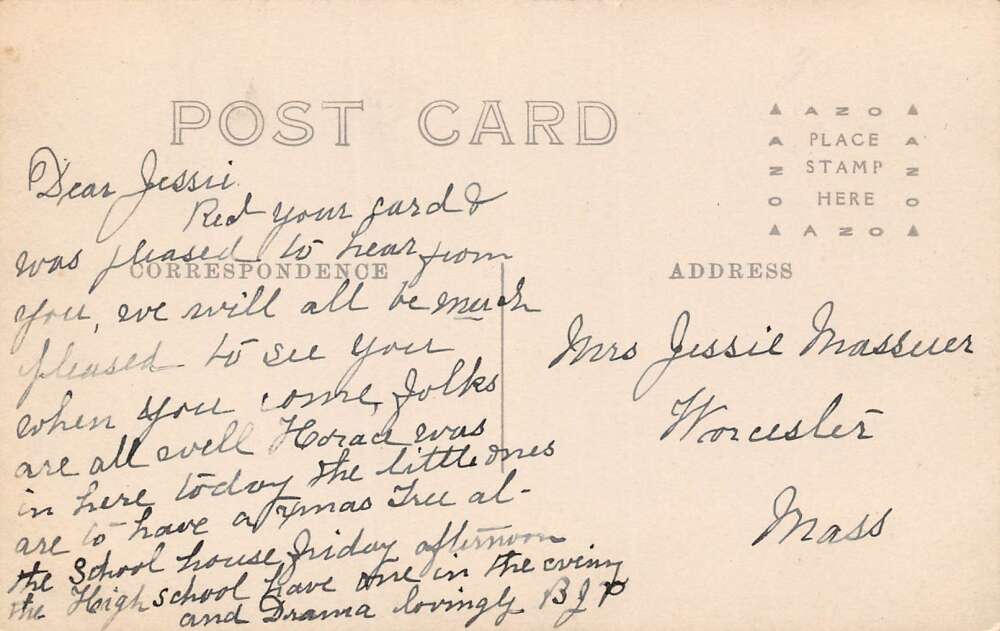 POST CARD
▲ AZO ▲
A PLACE A
N STAMP N
O HERE O
▲ AZO ▲
Dear Jessie
Red your card &
was pleased to hear from
CORRESPONDENCE
you, we will all be much
pleased to see you
when you come, folks
are all well Horace was
in here today the little ones
are to have a Xmas Tree at
the School house friday afternoon
the High school have one in the evening
and Drama lovingly B J P
ADDRESS
Mrs Jessie
Worcester
Mass